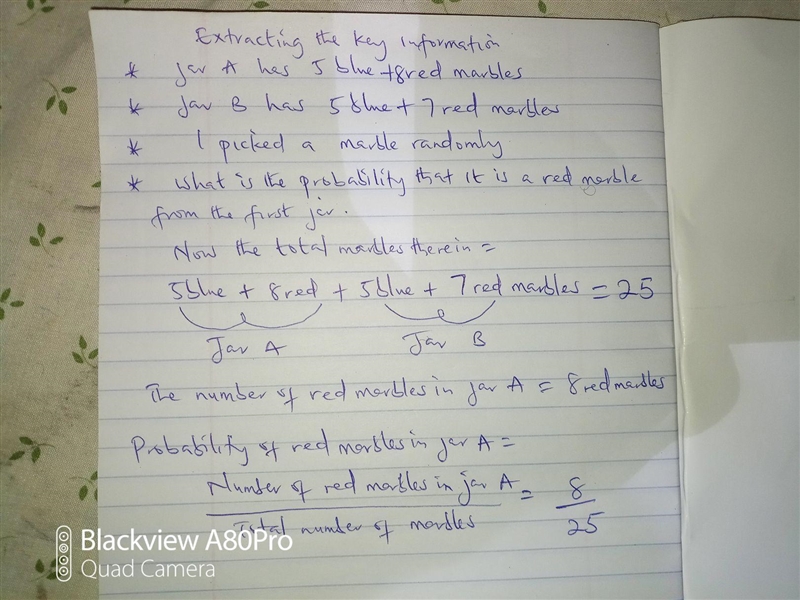 Extracting the key information
* Jar A has 5 blue + 8 red marbles
* Jar B has 5 blue + 7 red marbles
* I picked a marble randomly
* What is the probability that it is a red marble
from the first jar.
Now the total marbles therein =
5 blue + 8 red + 5 blue + 7 red marbles = 25
Jar A Jar B
The number of red marbles in jar A = 8 red marbles
Probability of red marbles in jar A =
Number of red marbles in jar A = 8
Total number of marbles 25
Blackview A80Pro
Quad Camera